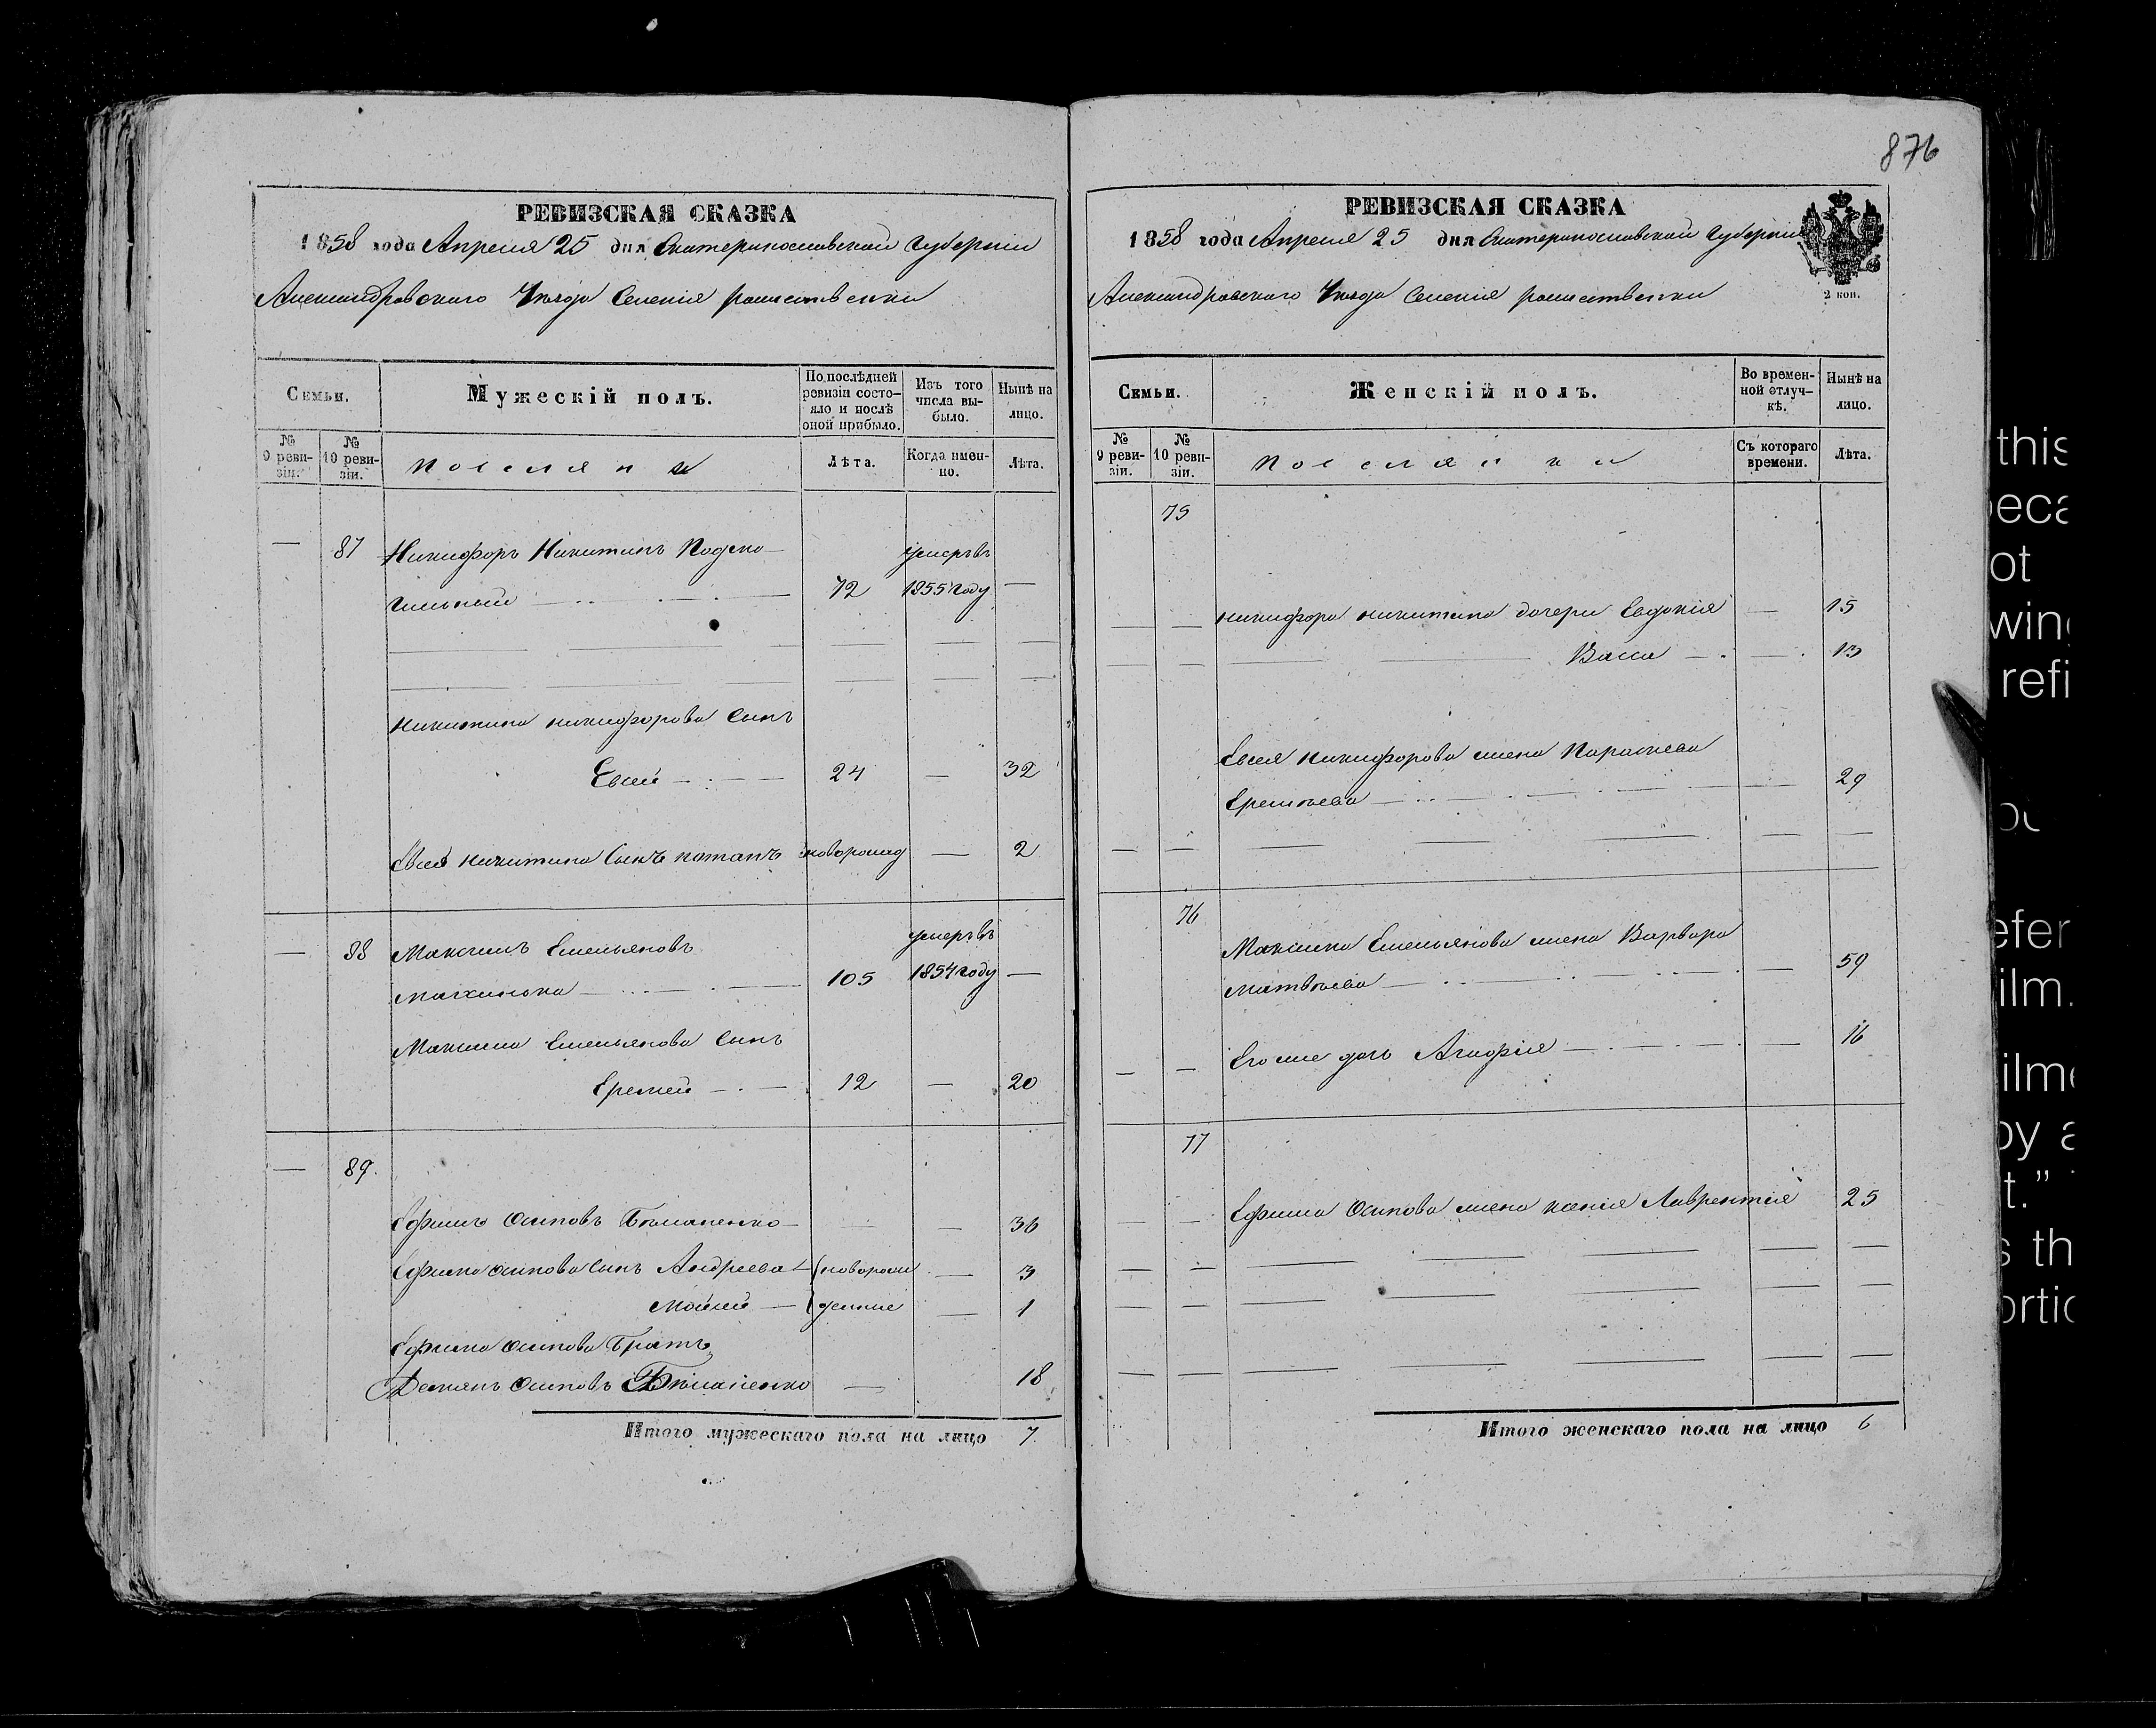 876
РЕВИЗСКАЯ СКАЗКА
1858 года Апреля 25 дня Екатеринославской Губернии
Александровского Уезда Селения рашственки
Семьи.
Мужескій полъ.
По послѣдней ревизіи состояло и послѣ оной прибыло.
Изъ того числа выбыло.
Нынѣ на лицо.
№ 9 ревизіи.
№ 10 ревизіи.
Поселяни
Лѣта.
Когда именно.
Лѣта.
— 87 Никифоръ Никитинъ Подско-
умеръ въ
72 1855 году —
никитина никифорова Сынъ
Евсей — 24 — 32
Евсея никитина Сынъ потапъ новорожд — 2
— 88 Максимъ Емельяновъ
умеръ въ
махинька — 105 1854 году —
Максима Емельянова Сынъ
Еремей — 12 — 20
— 89.
Ефимъ Осиповъ Бѣманенко — — 36
Ефима Осипова Сынъ Андреева — новорож — 3
Мойсей — денные — 1
Ефима Осипова Братъ
Демянъ Осиповъ Бѣманенко — 18
Итого мужескаго пола на лицо 7.
РЕВИЗСКАЯ СКАЗКА
1858 года Апреля 25 дня Екатеринославской Губернии
Александровского Уезда Селения рашственки
2 коп.
Семьи.
Женскій полъ.
Во временной отлучкѣ.
Нынѣ на лицо.
№ 9 ревизіи.
№ 10 ревизіи.
Поселянки
Съ котораго времени.
Лѣта.
75
— — никифора никитина дочери Евдокія — 15
Васса — 13
Евсея никифорова жена Параскева
Еремѣева — 29
76
Максима Емельянова жена Варвара
Матвѣева — 59
— — Его же дочь Агафія — 16
77
— — Ефима Осипова жена ксенія Лаврентія 25
Итого женскаго пола на лицо 6